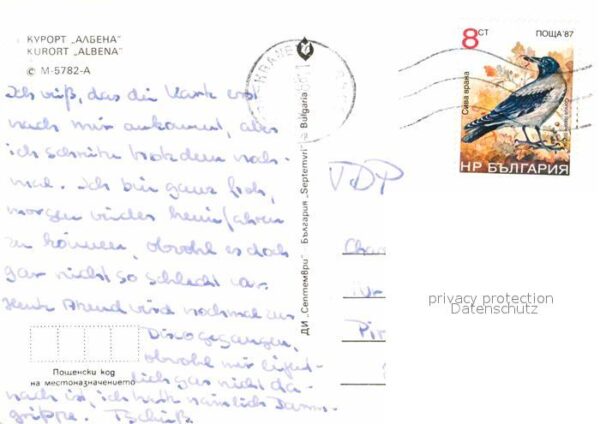 КУРОРТ „АЛБЕНА"
KURORT „ALBENA"
© М-5782-А
Ich weiß, das die Karte erst
nach mir ankommt, aber
ich schreibe trotzdem noch-
mal. Ich bin ganz froh,
morgen wieder heimfahren
zu können, obwohl es doch
gar nicht so schlecht war.
Heute Abend wird nochmal zur
Disco gegangen,
obwohl mir eigent-
lich gar nicht da-
nach ist, ich hab nämlich Darm-
grippe. Tschüß.
Пощенски код
на местоназначението
ДИ „Септември" България „Septemvri" Bulgaria
8 СТ
ПОЩА'87
Сива врана
НР БЪЛГАРИЯ
VDP
privacy protection
Datenschutz